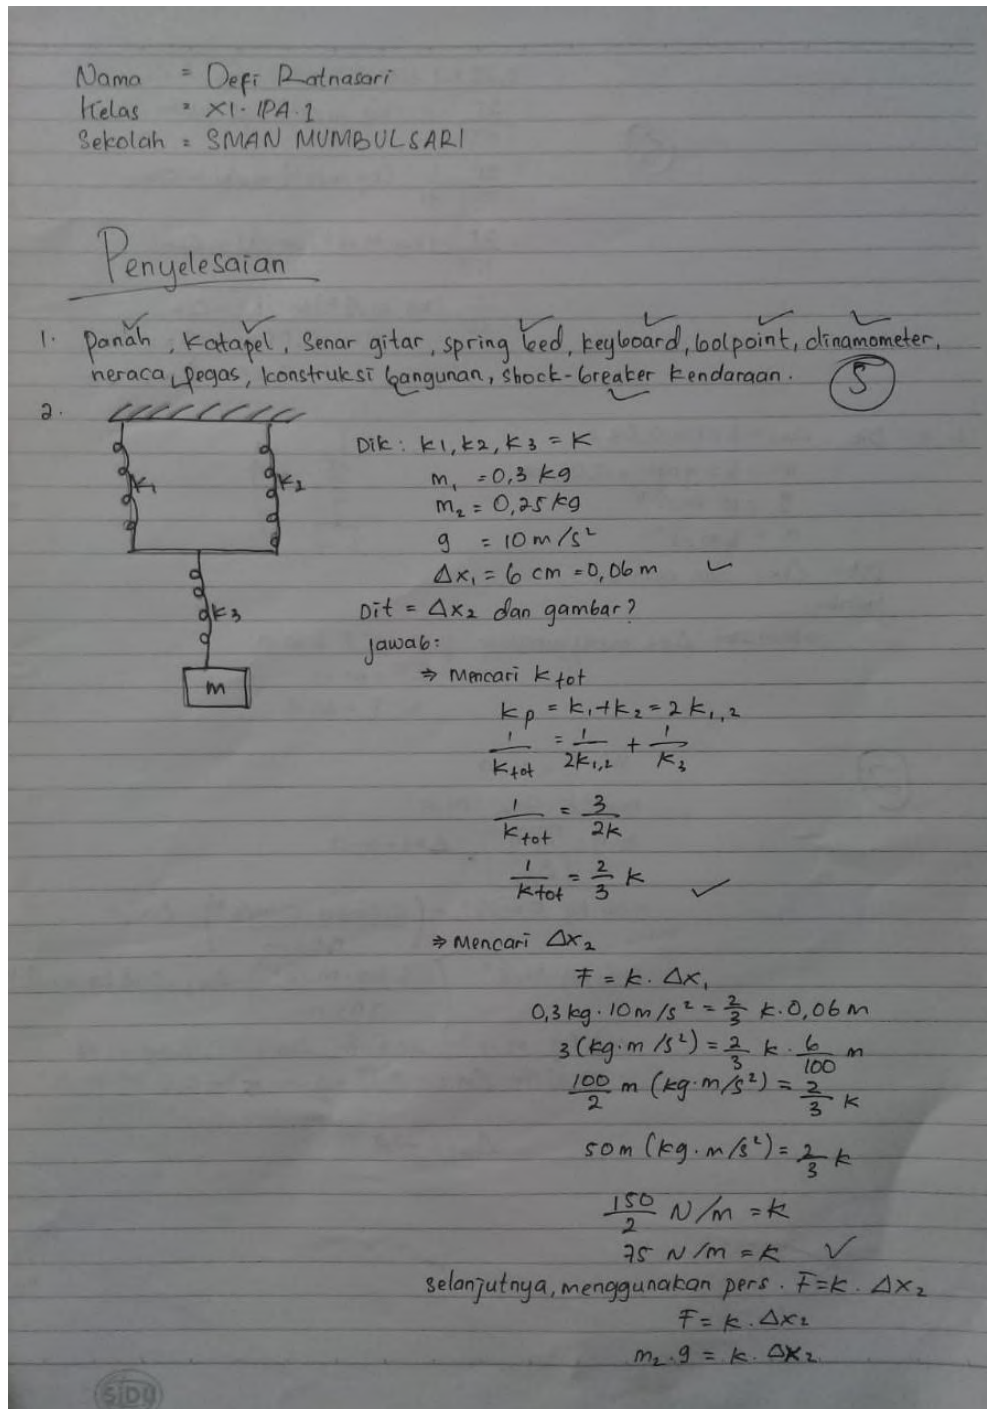 Nama = Defi Ratnasari
Kelas = XI-IPA-1
Sekolah = SMAN MUMBULSARI
Penyelesaian
1. Panah, Katapel, Senar gitar, spring bed, keyboard, bolpoint, dinamometer,
neraca pegas, konstruksi bangunan, shock-breaker kendaraan. 5
2.
k1 k2
k3
m
Dik : k1, k2, k3 = K
m₁ = 0,3 kg
m₂ = 0,25 kg
g = 10 m/s²
Δx₁ = 6 cm = 0,06 m
Dit = Δx₂ dan gambar?
jawab:
⇒ Mencari k tot
kp = k₁+k₂ = 2k₁,₂
1/k tot = 1/2k₁,₂ + 1/k₃
1/k tot = 3/2k
1/k tot = 2/3 k
⇒ Mencari Δx₂
F = k. Δx₁
0,3 kg. 10 m/s² = 2/3 k. 0,06 m
3 (kg.m/s²) = 2/3 k. 6/100 m
100/2 m (kg.m/s²) = 2/3 k
50 m (kg.m/s²) = 2/3 k
150/2 N/m = k
75 N/m = k
selanjutnya, menggunakan pers. F=k. Δx₂
F = k. Δx₂
m₂.g = k. Δx₂
SIDU